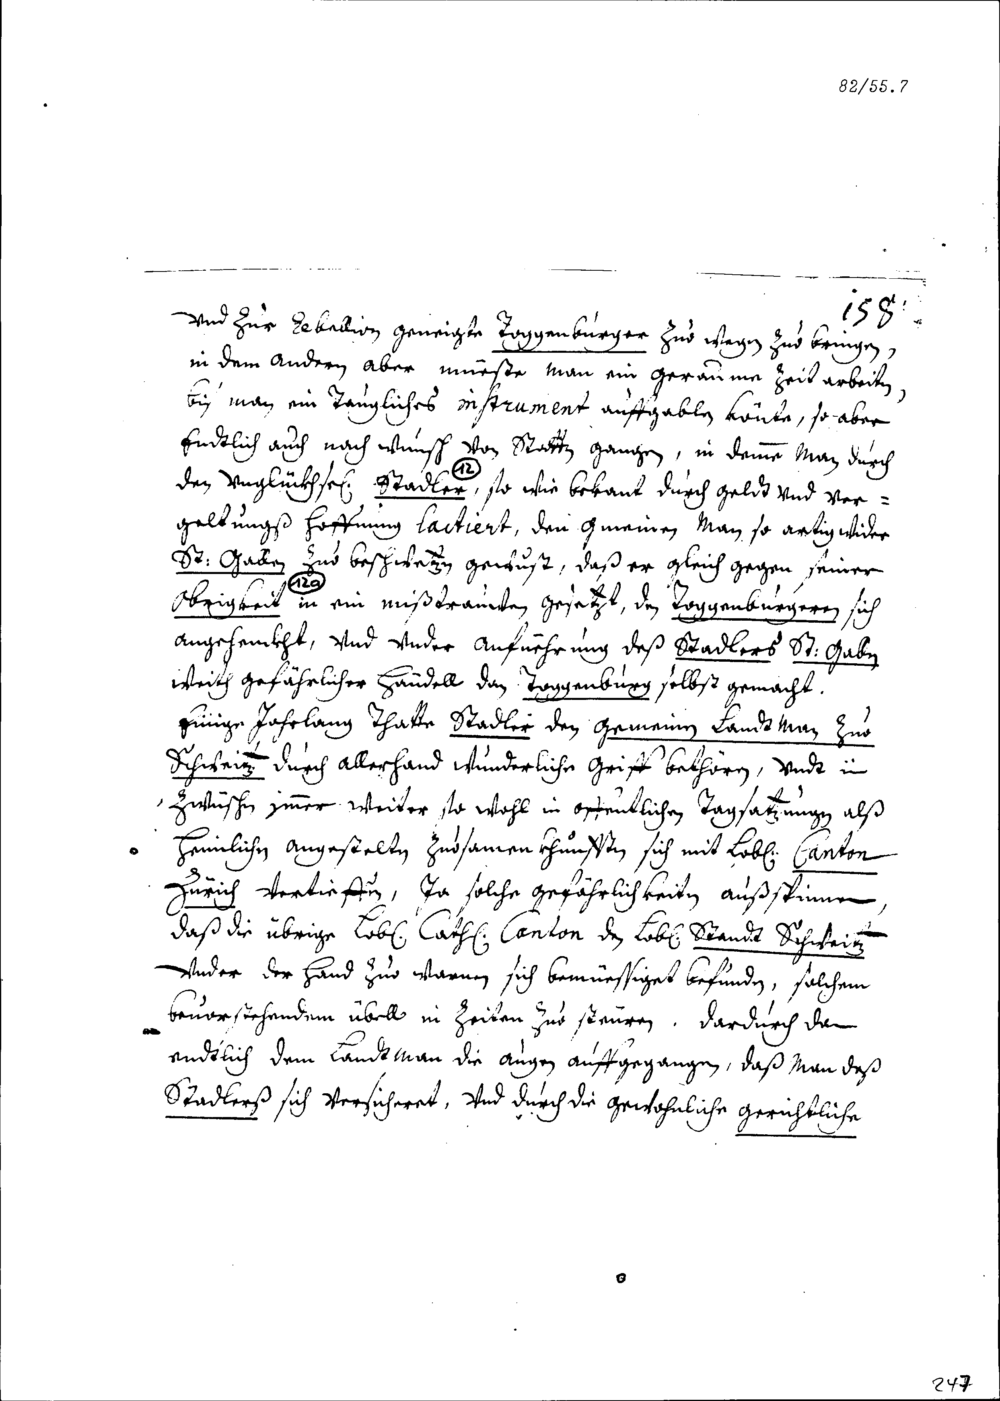 82/55.7
158
Vnd zur Rebellion geneigte Toggenburger zuo wegen zuo bringen,
in dem Andern aber müeste man ein geraume Zeit arbeiten,
bis man ein Taugliches instrument auffgablen könte, so aber
Endtlich auch nach wunsch von Statten gangen, in deme Man durch
den Vnglückhsel: Stadler, so wie bekant durch geldt vnd ver=
12
geltungß hoffnung lactiert, den gmeinen Man so artig wider
St: Gallen zuo beschwetzen gewust, daß er gleich gegen seiner
Obrigkeit in ein mißtrauwen gesetzt, den Toggenburgeren sich
12a
angehenckht, vnd vnder Anfüehrung deß Stadlers St: Gallen
weith gefährlicher händell dan Toggenburg selbst gemacht.
Einige Jahrlang Thatte Stadler den gemeinen Landt Man zuo
Schweitz durch allerhand wunderliche griff bethören, vndt in
zwüschen immer weiter so wohl in offentlichen Tagsatzungen alß
heimlichen angestelten zuosamenkhunfften sich mit Lobl: Canton
Zürich vertieffen, Ja solche gefährlichkeiten außspinnen,
daß die übrige Lobl: Cath: Canton den Lobl: Standt Schweitz
vnder der hand zuo warnen sich bemüessiget befunden, solchem
beuorstehendem übell in Zeiten zuo steüren. dardurch dan
endtlich dem Landt Man die augen auffgegangen, daß Man deß
Stadlerß sich versicheret, vnd durch die gewohnliche gerichtliche
247